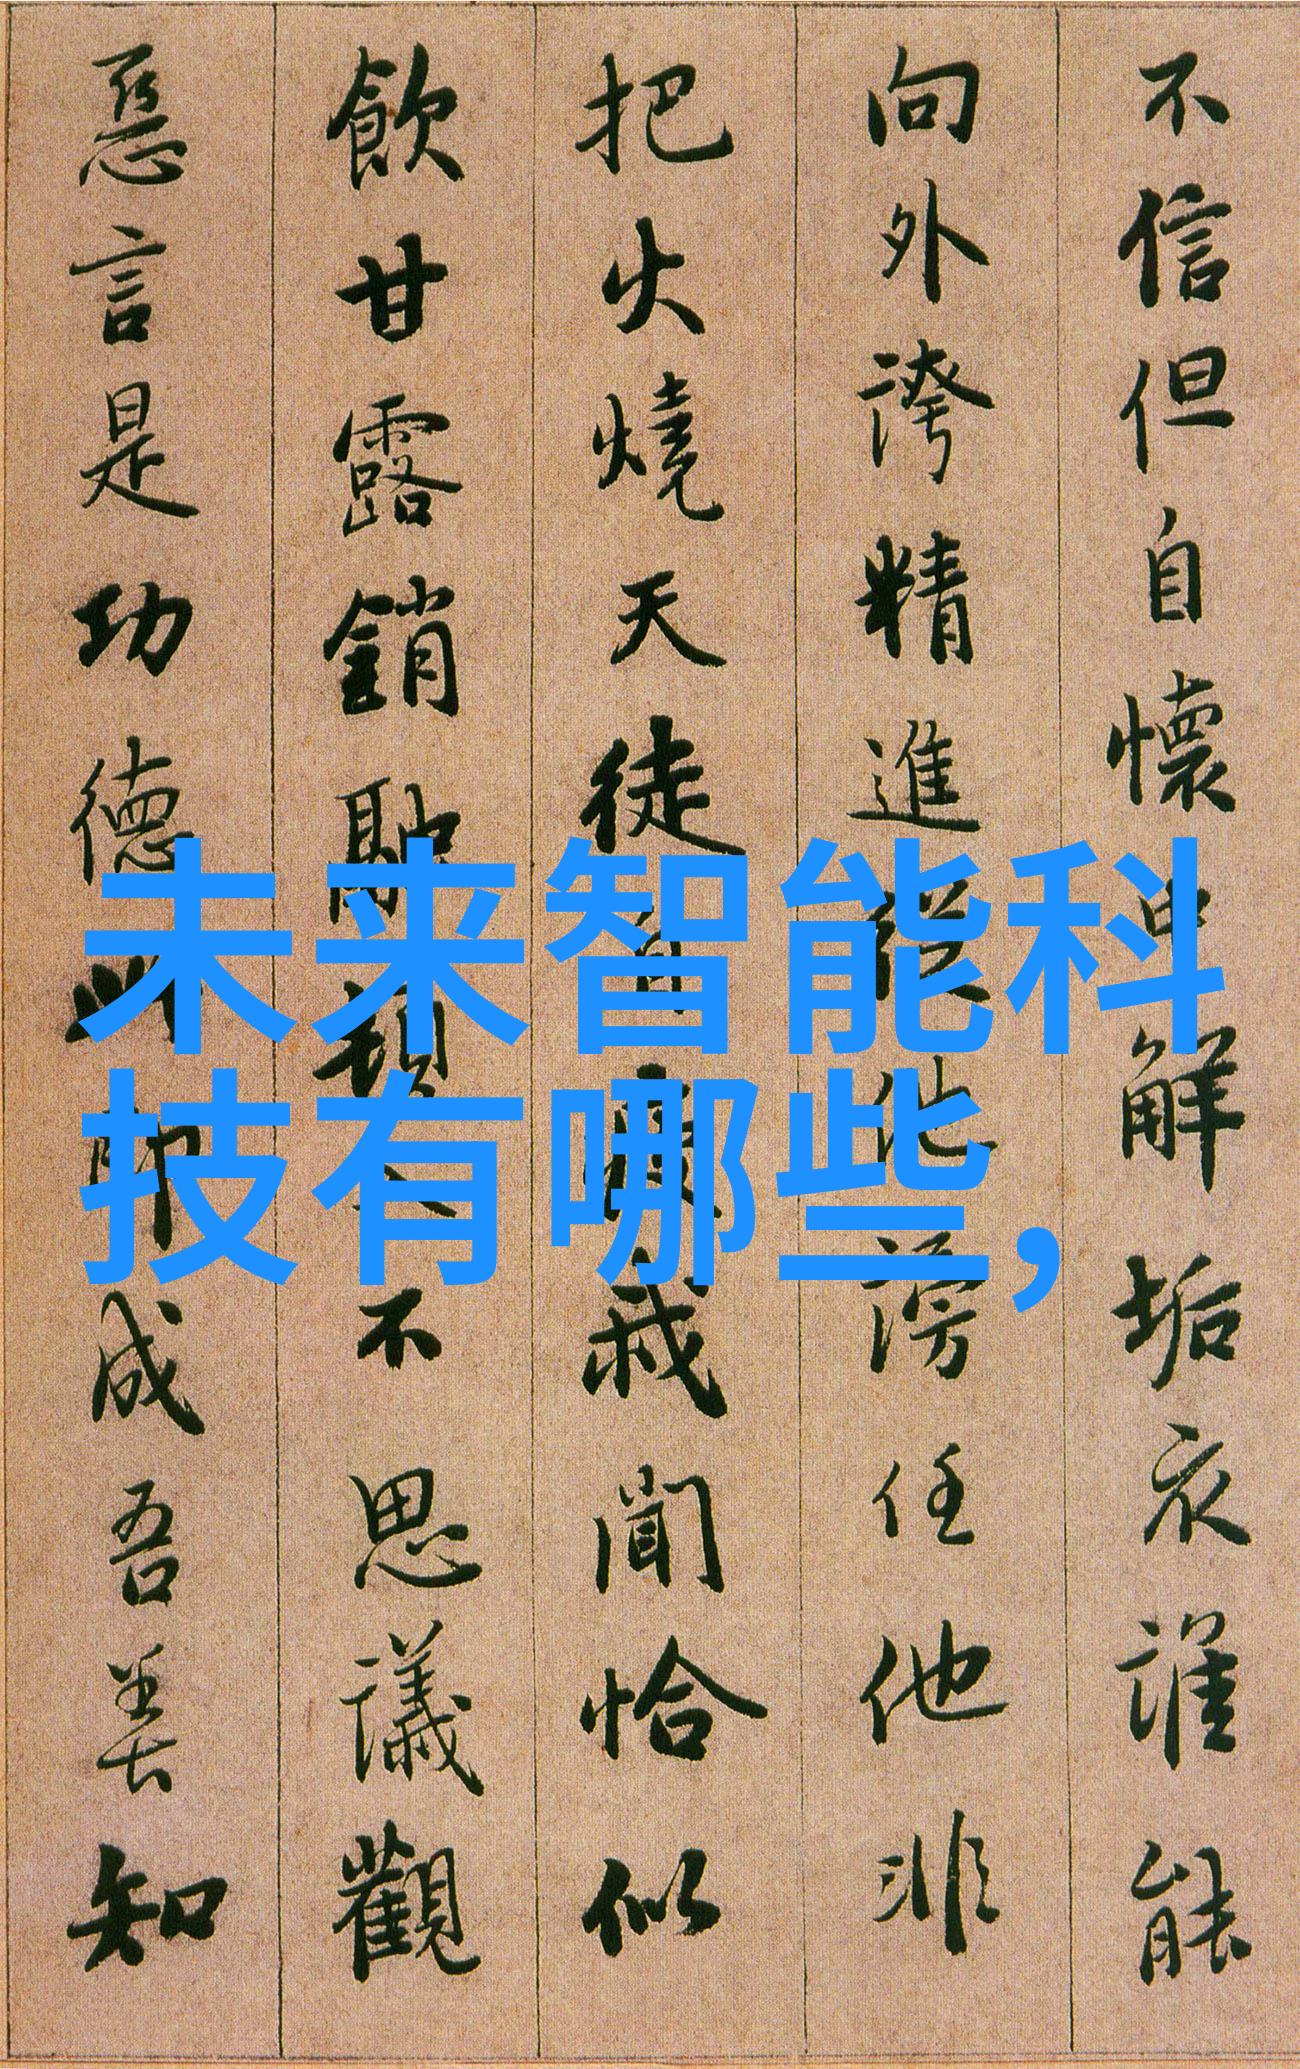 不信但自懷中解垢衣誰能
向外誇精進從他謗任他非
把火燒天徒自疲我聞恰似
飲甘露銷融頓入不思議觀
惡言是功德此即成吾善知
未来智能科
技有哪些,